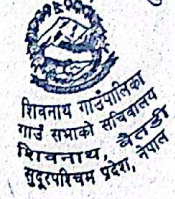 शिवनाथ गाउंपालिका
गाउं सभाको सचिवालय
शिवनाथ, बैतडी
सुदूरपश्चिम प्रदेश, नेपाल